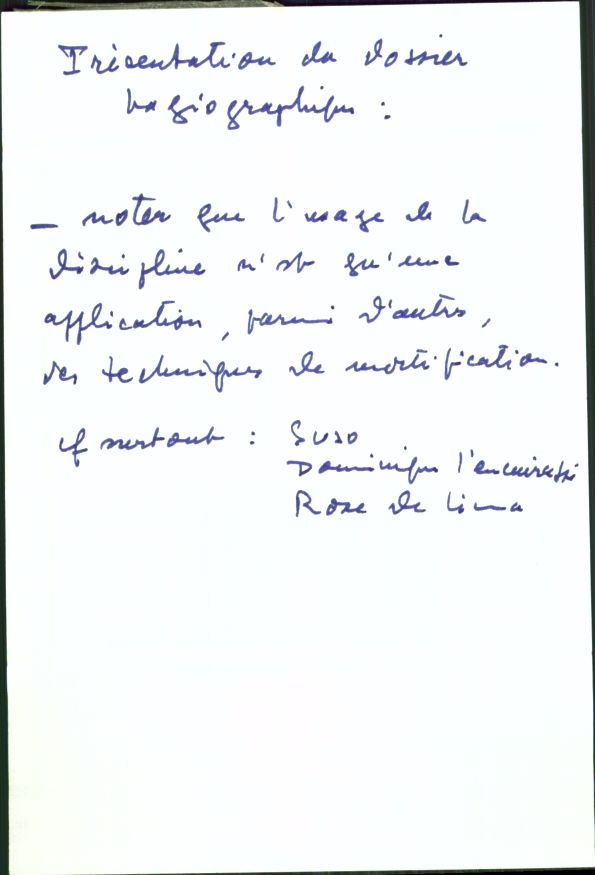 Présentation du dossier
hagiographique :
— noter que l'usage de la
discipline n'est qu'une
application, parmi d'autres,
des techniques de mortification.
cf surtout : Suso
Dominique l'encuirassé
Rose de Lima